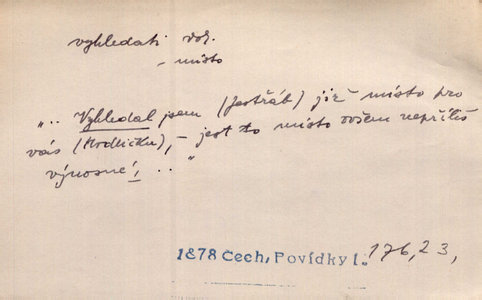 vyhledati dok.
– místo
„.. Vyhledal jsem (Jestřáb) již místo pro
vás (Hrdličku), – jest to místo ovšem nepříliš
výnosné, .. “
1878 Čech, Povídky I. 176, 23,